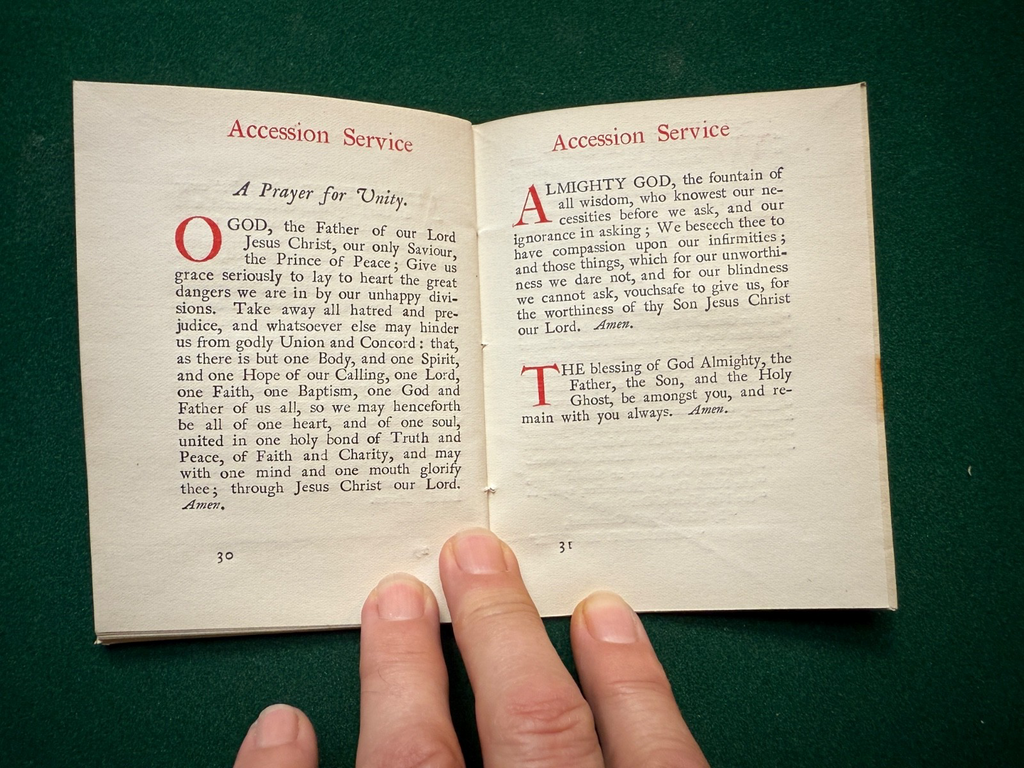 Accession Service
A Prayer for Unity.
O GOD, the Father of our Lord
Jesus Christ, our only Saviour,
the Prince of Peace; Give us
grace seriously to lay to heart the great
dangers we are in by our unhappy divi-
sions. Take away all hatred and pre-
judice, and whatsoever else may hinder
us from godly Union and Concord: that,
as there is but one Body, and one Spirit,
and one Hope of our Calling, one Lord,
one Faith, one Baptism, one God and
Father of us all, so we may henceforth
be all of one heart, and of one soul,
united in one holy bond of Truth and
Peace, of Faith and Charity, and may
with one mind and one mouth glorify
thee; through Jesus Christ our Lord.
Amen.
30
Accession Service
ALMIGHTY GOD, the fountain of
all wisdom, who knowest our ne-
cessities before we ask, and our
ignorance in asking; We beseech thee to
have compassion upon our infirmities;
and those things, which for our unworthi-
ness we dare not, and for our blindness
we cannot ask, vouchsafe to give us, for
the worthiness of thy Son Jesus Christ
our Lord. Amen.
THE blessing of God Almighty, the
Father, the Son, and the Holy
Ghost, be amongst you, and re-
main with you always. Amen.
31